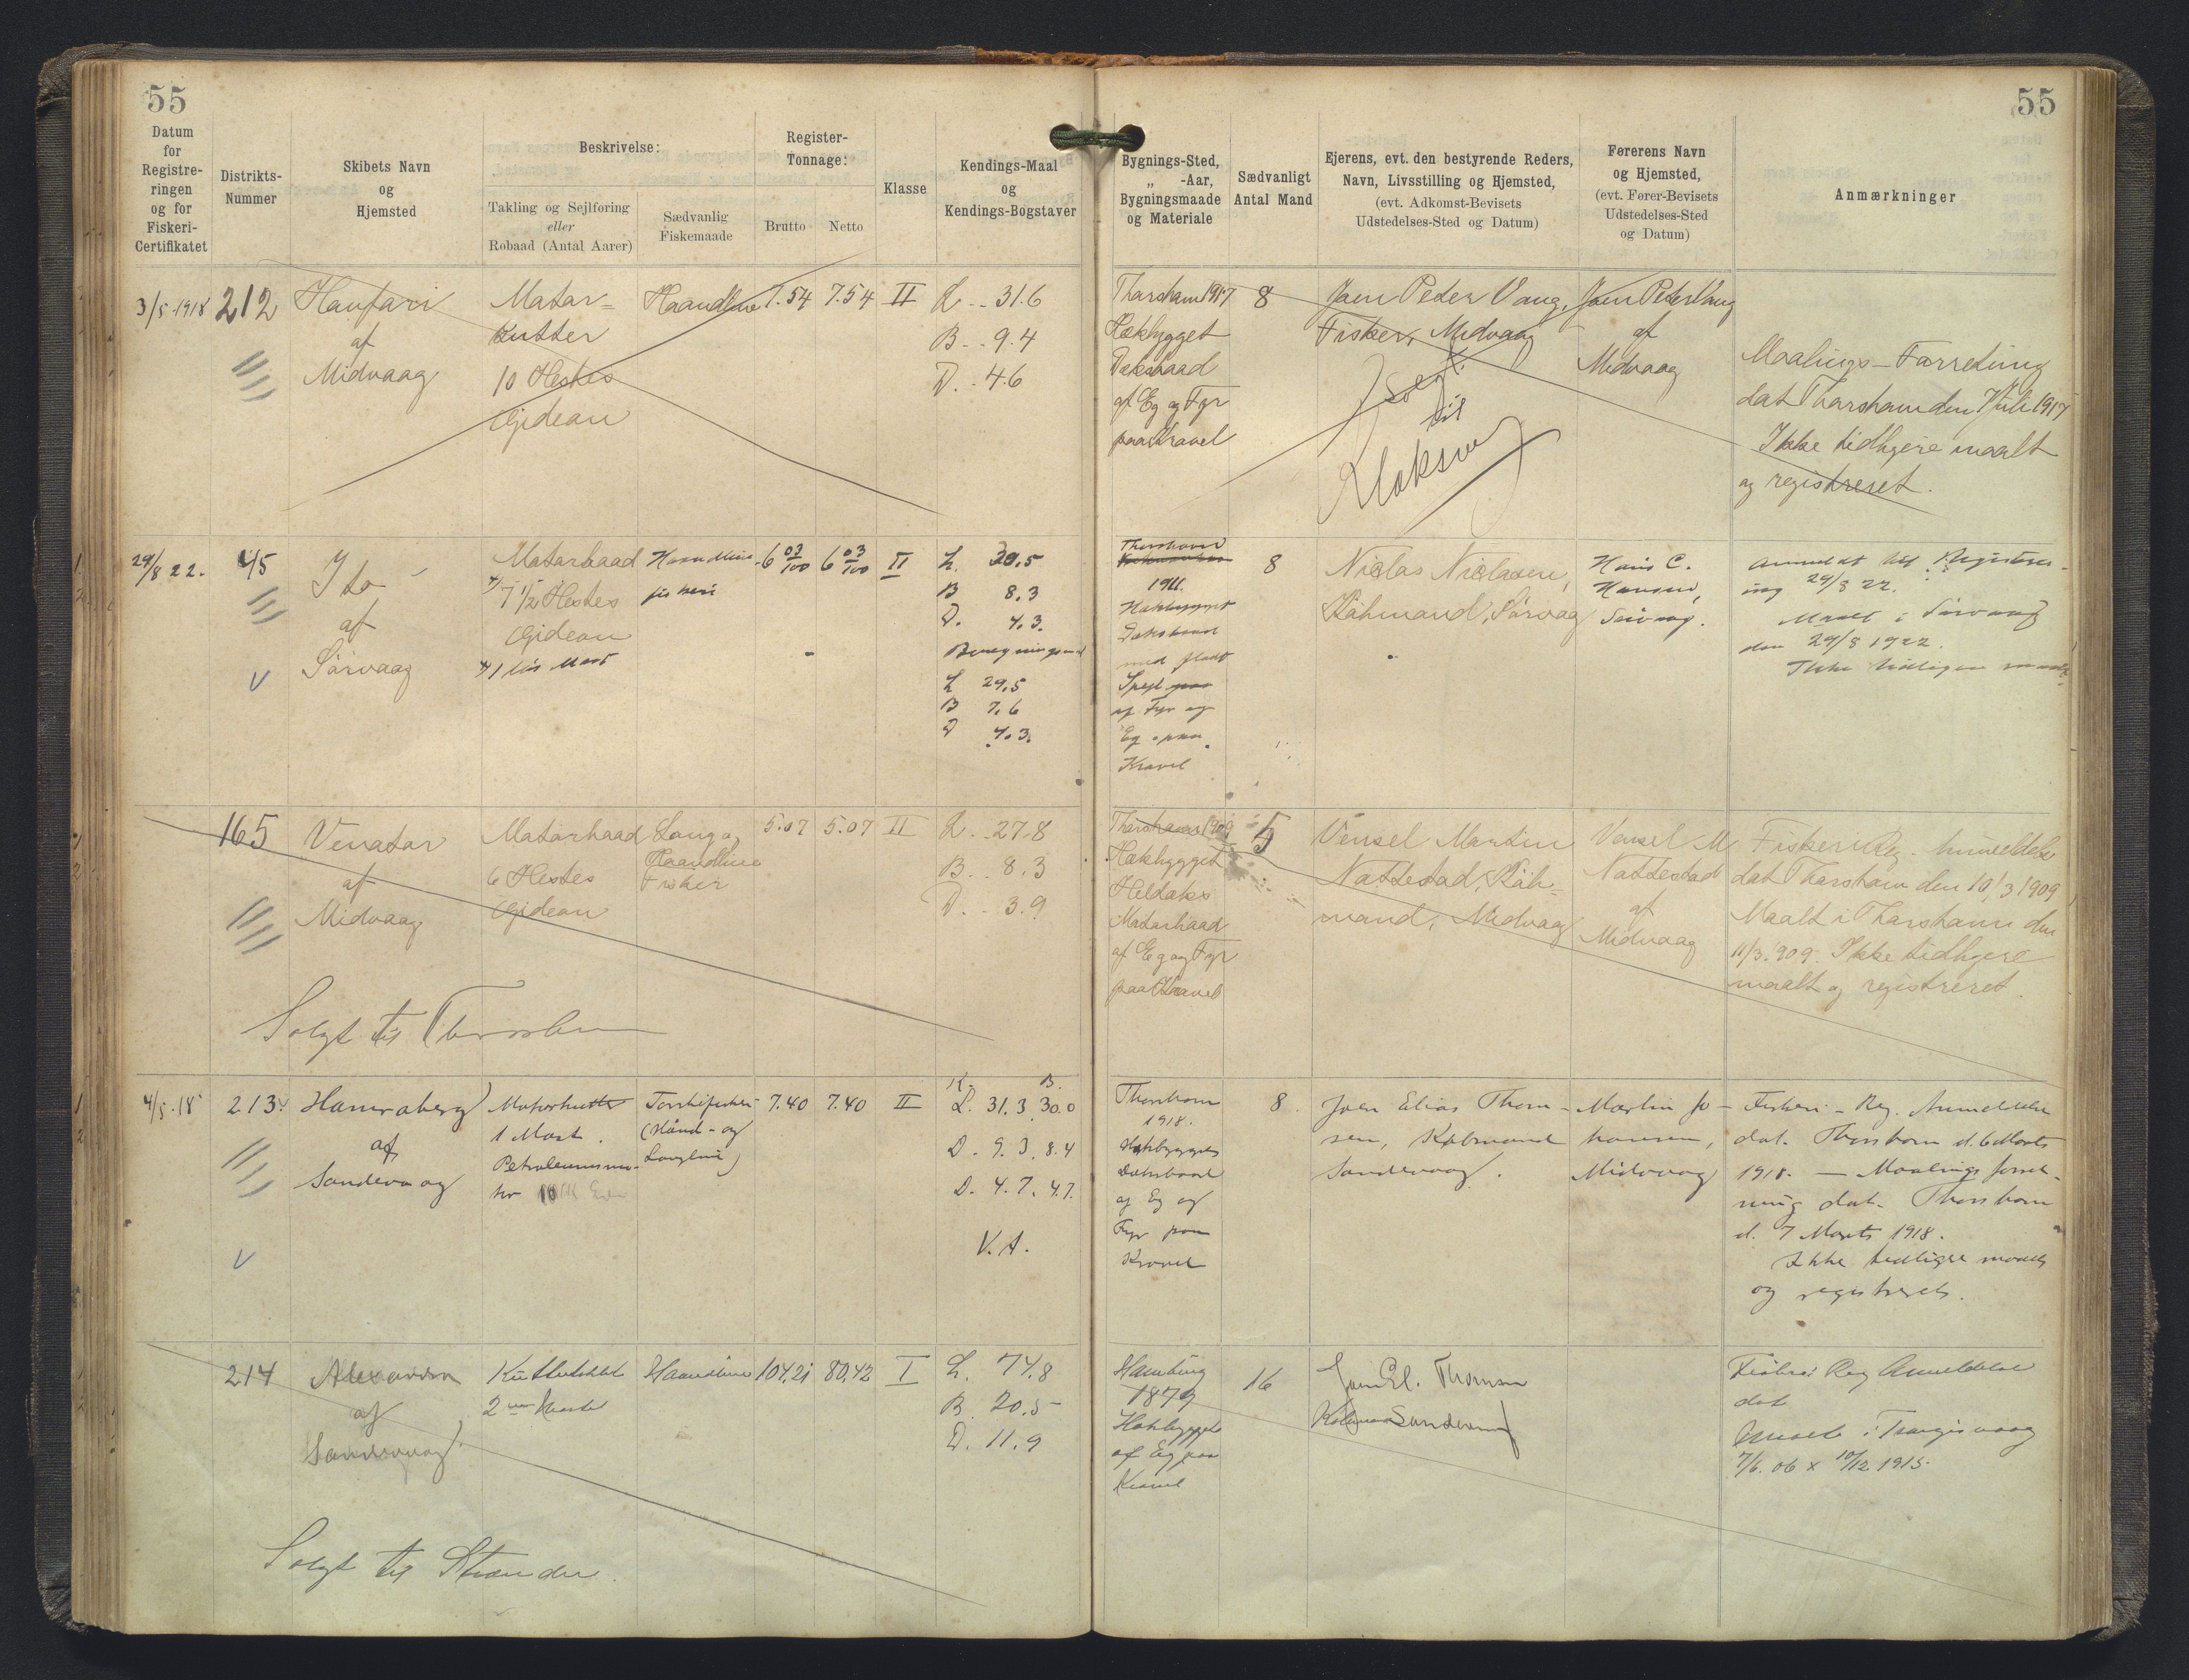 55
55
Datum
for
Registre-
ringen
og for
Fiskeri-
Certifikatet
Distrikts-
Nummer
Skibets Navn
og
Hjemsted
Beskrivelse:
Takling og Sejlføring
eller
Robaad (Antal Aarer)
Sædvanlig
Fiskemaade
Register-
Tonnage:
Brutto
Netto
Klasse
Kendings-Maal
og
Kendings-Bogstaver
Bygnings-Sted,
„ -Aar,
Bygningsmaade
og Materiale
Sædvanligt
Antal Mand
Ejerens, evt. den bestyrende Reders,
Navn, Livsstilling og Hjemsted,
(evt. Adkomst-Bevisets
Udstedelses-Sted og Datum)
Førerens Navn
og Hjemsted,
(evt. Fører-Bevisets
Udstedelses-Sted
og Datum)
Anmærkninger
3/5 1918
212
af
Midvaag
Motor-
Kutter
10 Hestes
Gideon
Haandline
7.54
7.54
II
L - 31.6
B - 9.4
D. - 4.6
Thorshavn 1917
Hækbygget
Dæksbaad
af Eg og Fyr
paa Kravel
8
Joen Peter Vang,
Fisker, Midvaag
Solgt
til
Klaksvig
Joen Peter Vang
af
Midvaag
Maalings-Forretning
dat Thorshavn den 7 Juli 1917
Ikke tidligere maalt
og registreret.
29/8 22.
45
Ito
af
Sörvaag
Motorbaad
7 1/2 Hestes
Gideon
Haandline
fiskeri
6 03/100
6 03/100
II
L. 30,5
B 8,3
D. 4.3.
L 29,5
B 7,6
D 4.3.
Thorshavn
1911.
Hækbygget
Dæksbaad
med fladt
Spejl
af Fyr og
Eg paa
Kravel
8
Niclas Niclasen,
Köbmand, Sörvaag
Hans C.
Hansen,
Sörvaag.
Anmeldt til Registrer-
ing 29/8 22.
Maalt i Sörvaag
den 29/8 1922.
Ikke tidligere maalt
165
Venator
af
Midvaag
Motorbaad
6 Hestes
Gideon
Lang og
Haandline
Fiskeri
5.07
5.07
II
L. - 27.8
B. - 8.3
D. - 3.9
Solgt til Thorshavn
Thorshavn 1909
Hækbygget
Heldæks
Motorbaad
af Eg og Fyr
paa Kravel
5
Vensel Martin
Nattestad, Köb-
mand, Midvaag
Vensel M
Nattestad
af
Midvaag
Fiskeri Reg. Anmeldelse
dat Thorshavn den 10/3 1909
Maalt i Thorshavn den
11/3.909. Ikke tidligere
maalt og registreret.
4/5.18
213.
Hamraberg
af
Sandevaag
Motorkutter
1 Mast.
Petroleumsmo-
tor
Torskefiskeri
(Haand- og
Langline)
7.40
7.40
II
K. B.
L. 31.3 30.0
9.3. 8.4
D. 4.7. 4.7.
V.A.
Thorshavn
1918.
Hækbygget
Dæksbaad
af Eg og
Fyr paa
Kravel
8.
Joen Elias Thom-
sen, Købmand
Sandevaag.
Martin Jo-
hansen,
Midvaag
Fiskeri-Reg. Anmeldelse
dat. Thorshavn d. 6 Marts
1918. - Maalings forret-
ning dat. Thorshavn
d. 7 Marts 1918.
Ikke tidligere maalt
og registreret.
214
Alexandra
af
Sandevaag
2 Master
Haandline
104,21
80,42
I
L. 74,8
B. 20,5
D. 11,9
Solgt til Strænder.
Hamburg
1879
Hækbygget
af Eg paa
Kravel
16
Joen El. Thomsen
Købmand Sandevaag
Fiskeri Reg Anmeldelse
dat
Maalt i Trangisvaag
7/6.06 x 10/12 1915.